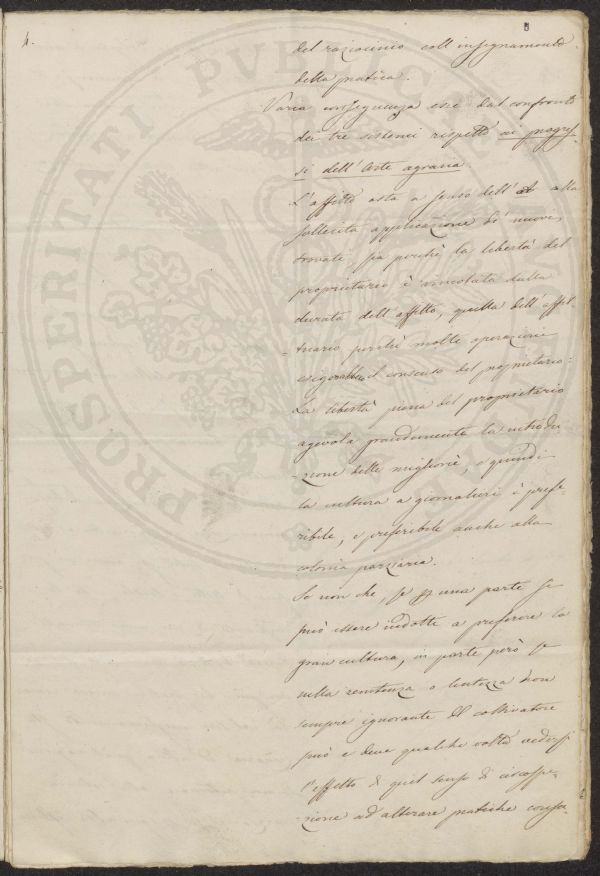 4.
8
del raziocinio coll'insegnamento
della pratica.
Varia conseguenza esce dal confronto
dei tre sistemi rispetto ai progres-
si dell'Arte agraria.
L'affitto osta a senso dell' alla
sollecita applicazione di nuovi
trovati, sia perchè la libertà del
proprietario è vincolata dalla
durata dell'affitto, quella dell'affit-
tuario perchè molte operazioni
esigerebbero il consenso del proprietario:
La libertà piena del proprietario
agevola grandemente la introdu-
zione delle migliorie, e quindi
la cultura a giornalieri è prefe-
ribile, e preferibile anche alla
colonia parziaria.
Se non che, se una parte si
può essere indotti a preferire la
gran cultura, in parte però
nella renitenza o lentezza non
sempre ignorante del coltivatore
può e deve qualche volta vedersi
l'effetto di quel senso di circospe-
zione ad alterare pratiche consa-
PROSPERITATI PUBLICAE